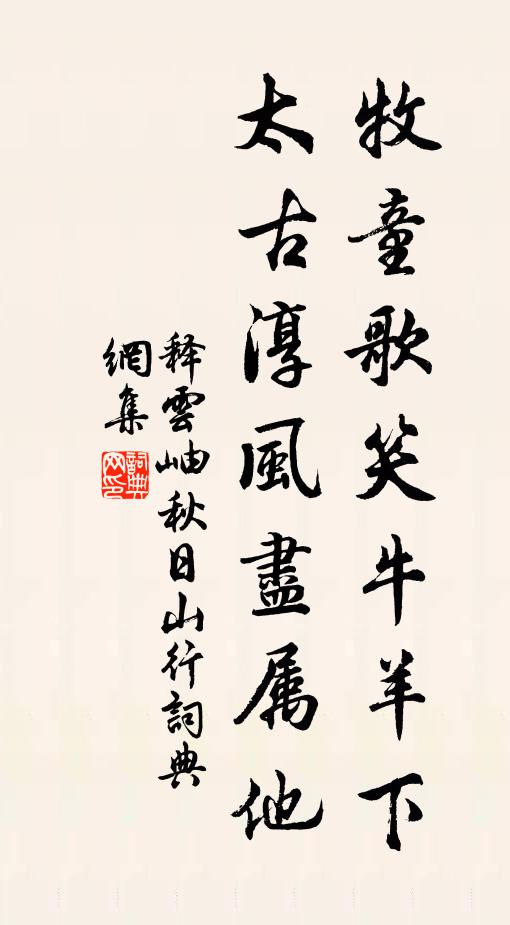 牧童歌笑牛羊下
太古淳風盡属他
释雲岫秋日山行詞典
網集
詞典网印